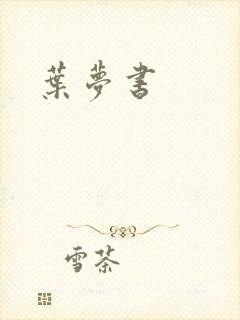 葉夢書
雪茶